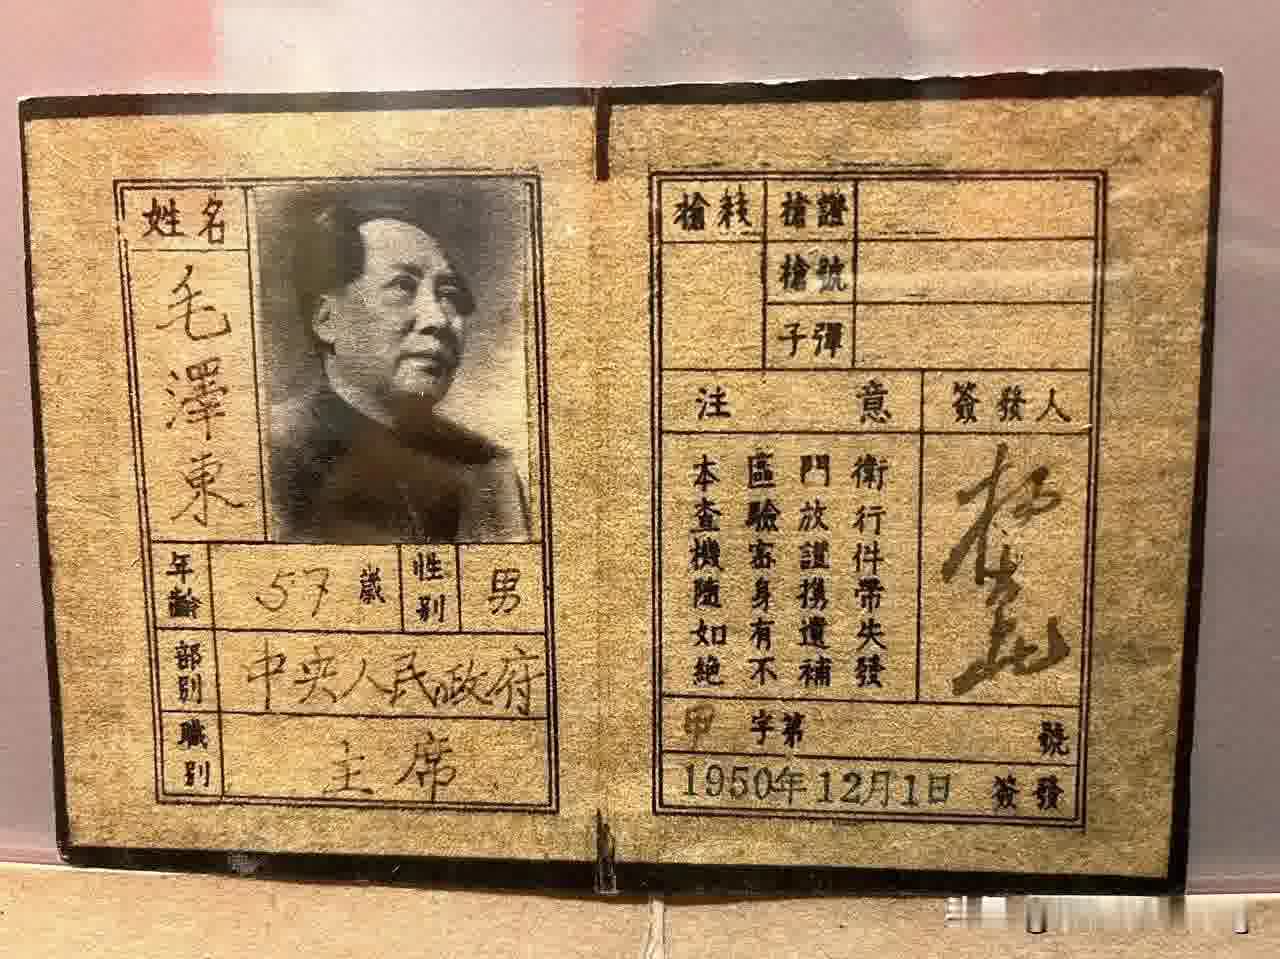 姓名
毛澤東
年齡 57 歲 性別 男
部別 中央人民政府
職別 主席
槍枝 槍證
槍號
子彈
注意 簽發人
本區門衛
查驗放行
機審證件
隨身携帶
如有遺失
絕不補發
楊尚昆
甲 字第 號
1950年12月1日 簽發